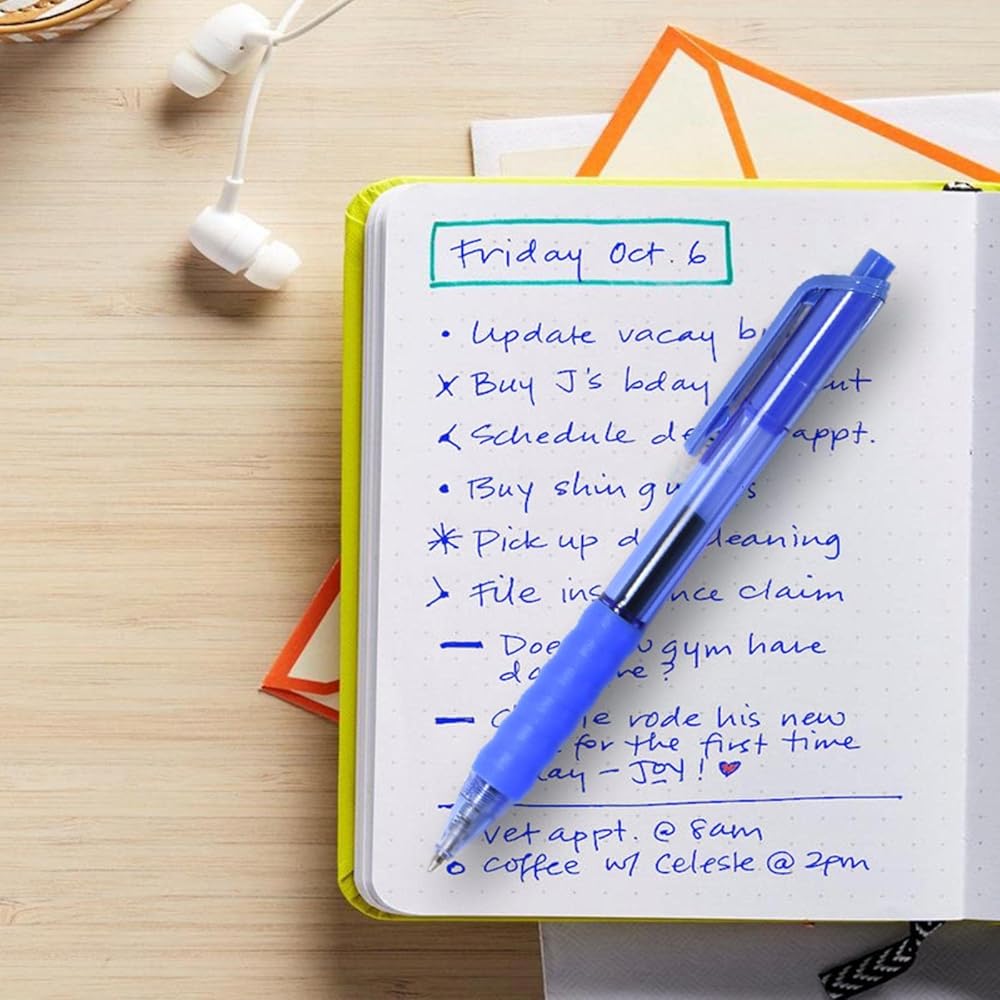 Friday Oct. 6
• Update vacay
x Buy J's bday
< Schedule appt.
• Buy shin
* Pick up
> File claim
— gym have
?
— rode his new
for the first time
— JOY! ♥
vet appt. @ 8am
o coffee w/ Celeste @ 2pm